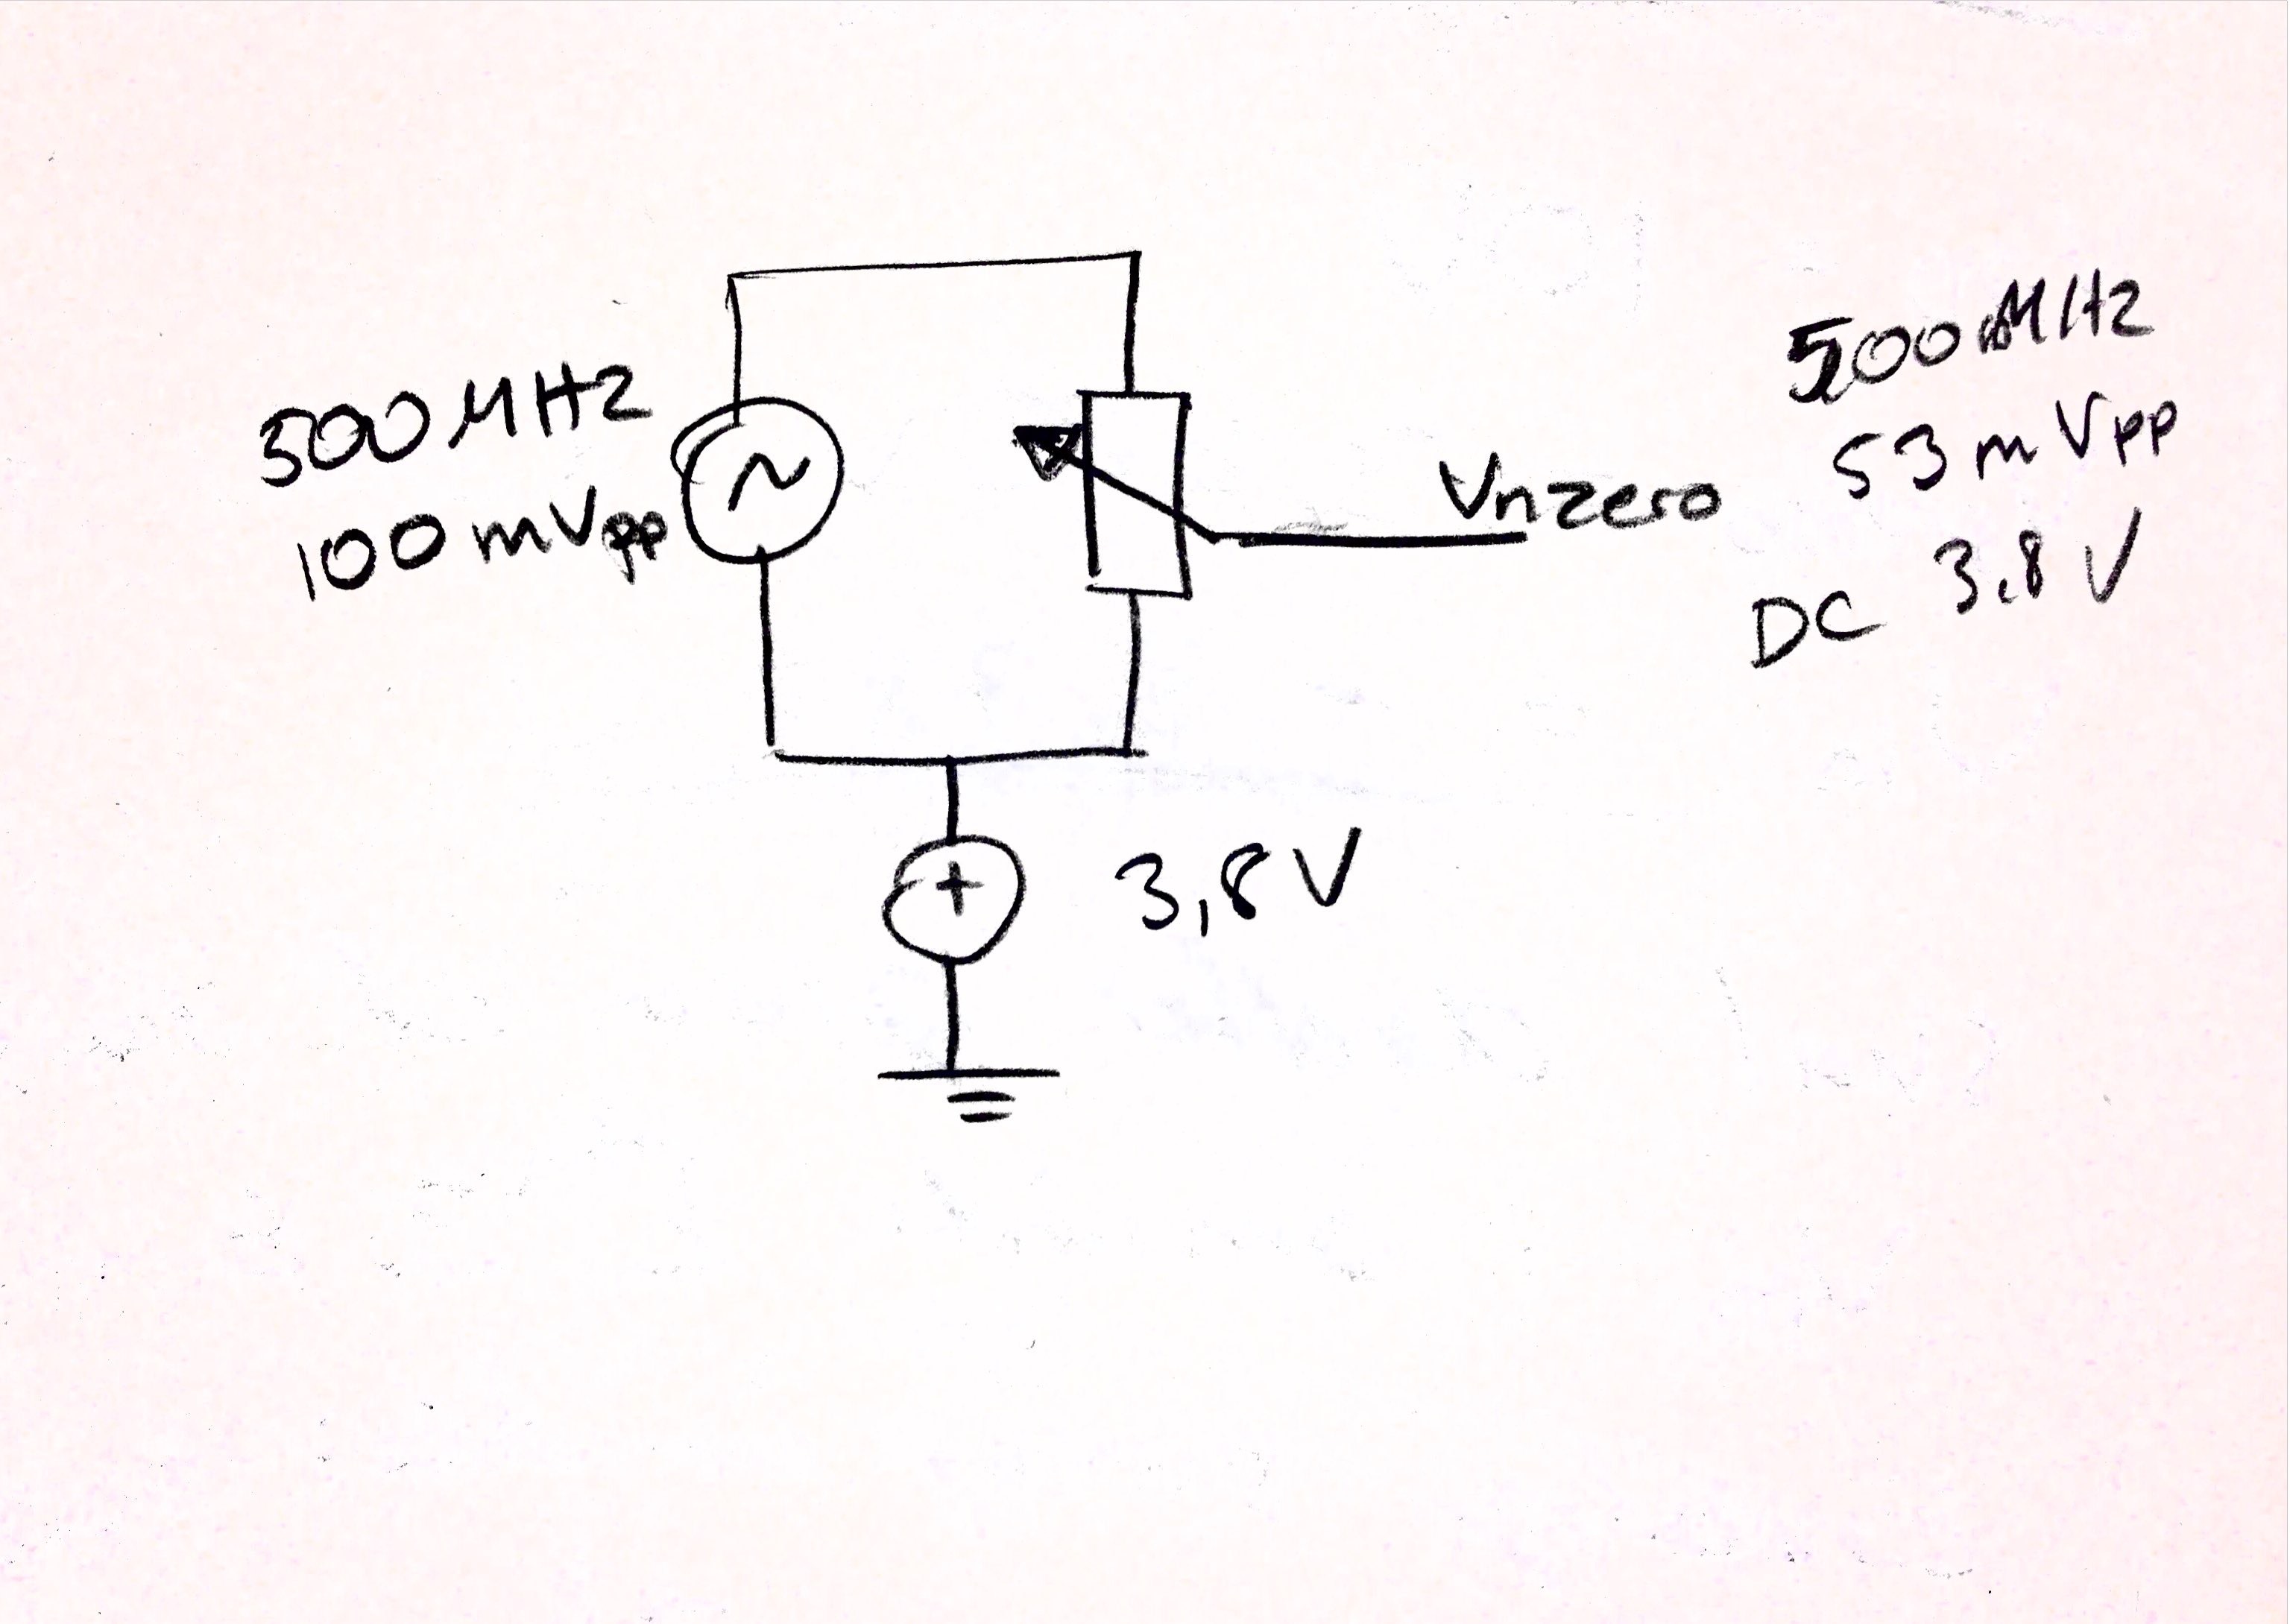 500 MHz
100 mVpp
~
Vnzero
500 MHz
53 mVpp
DC 3.8 V
+
3,8 V